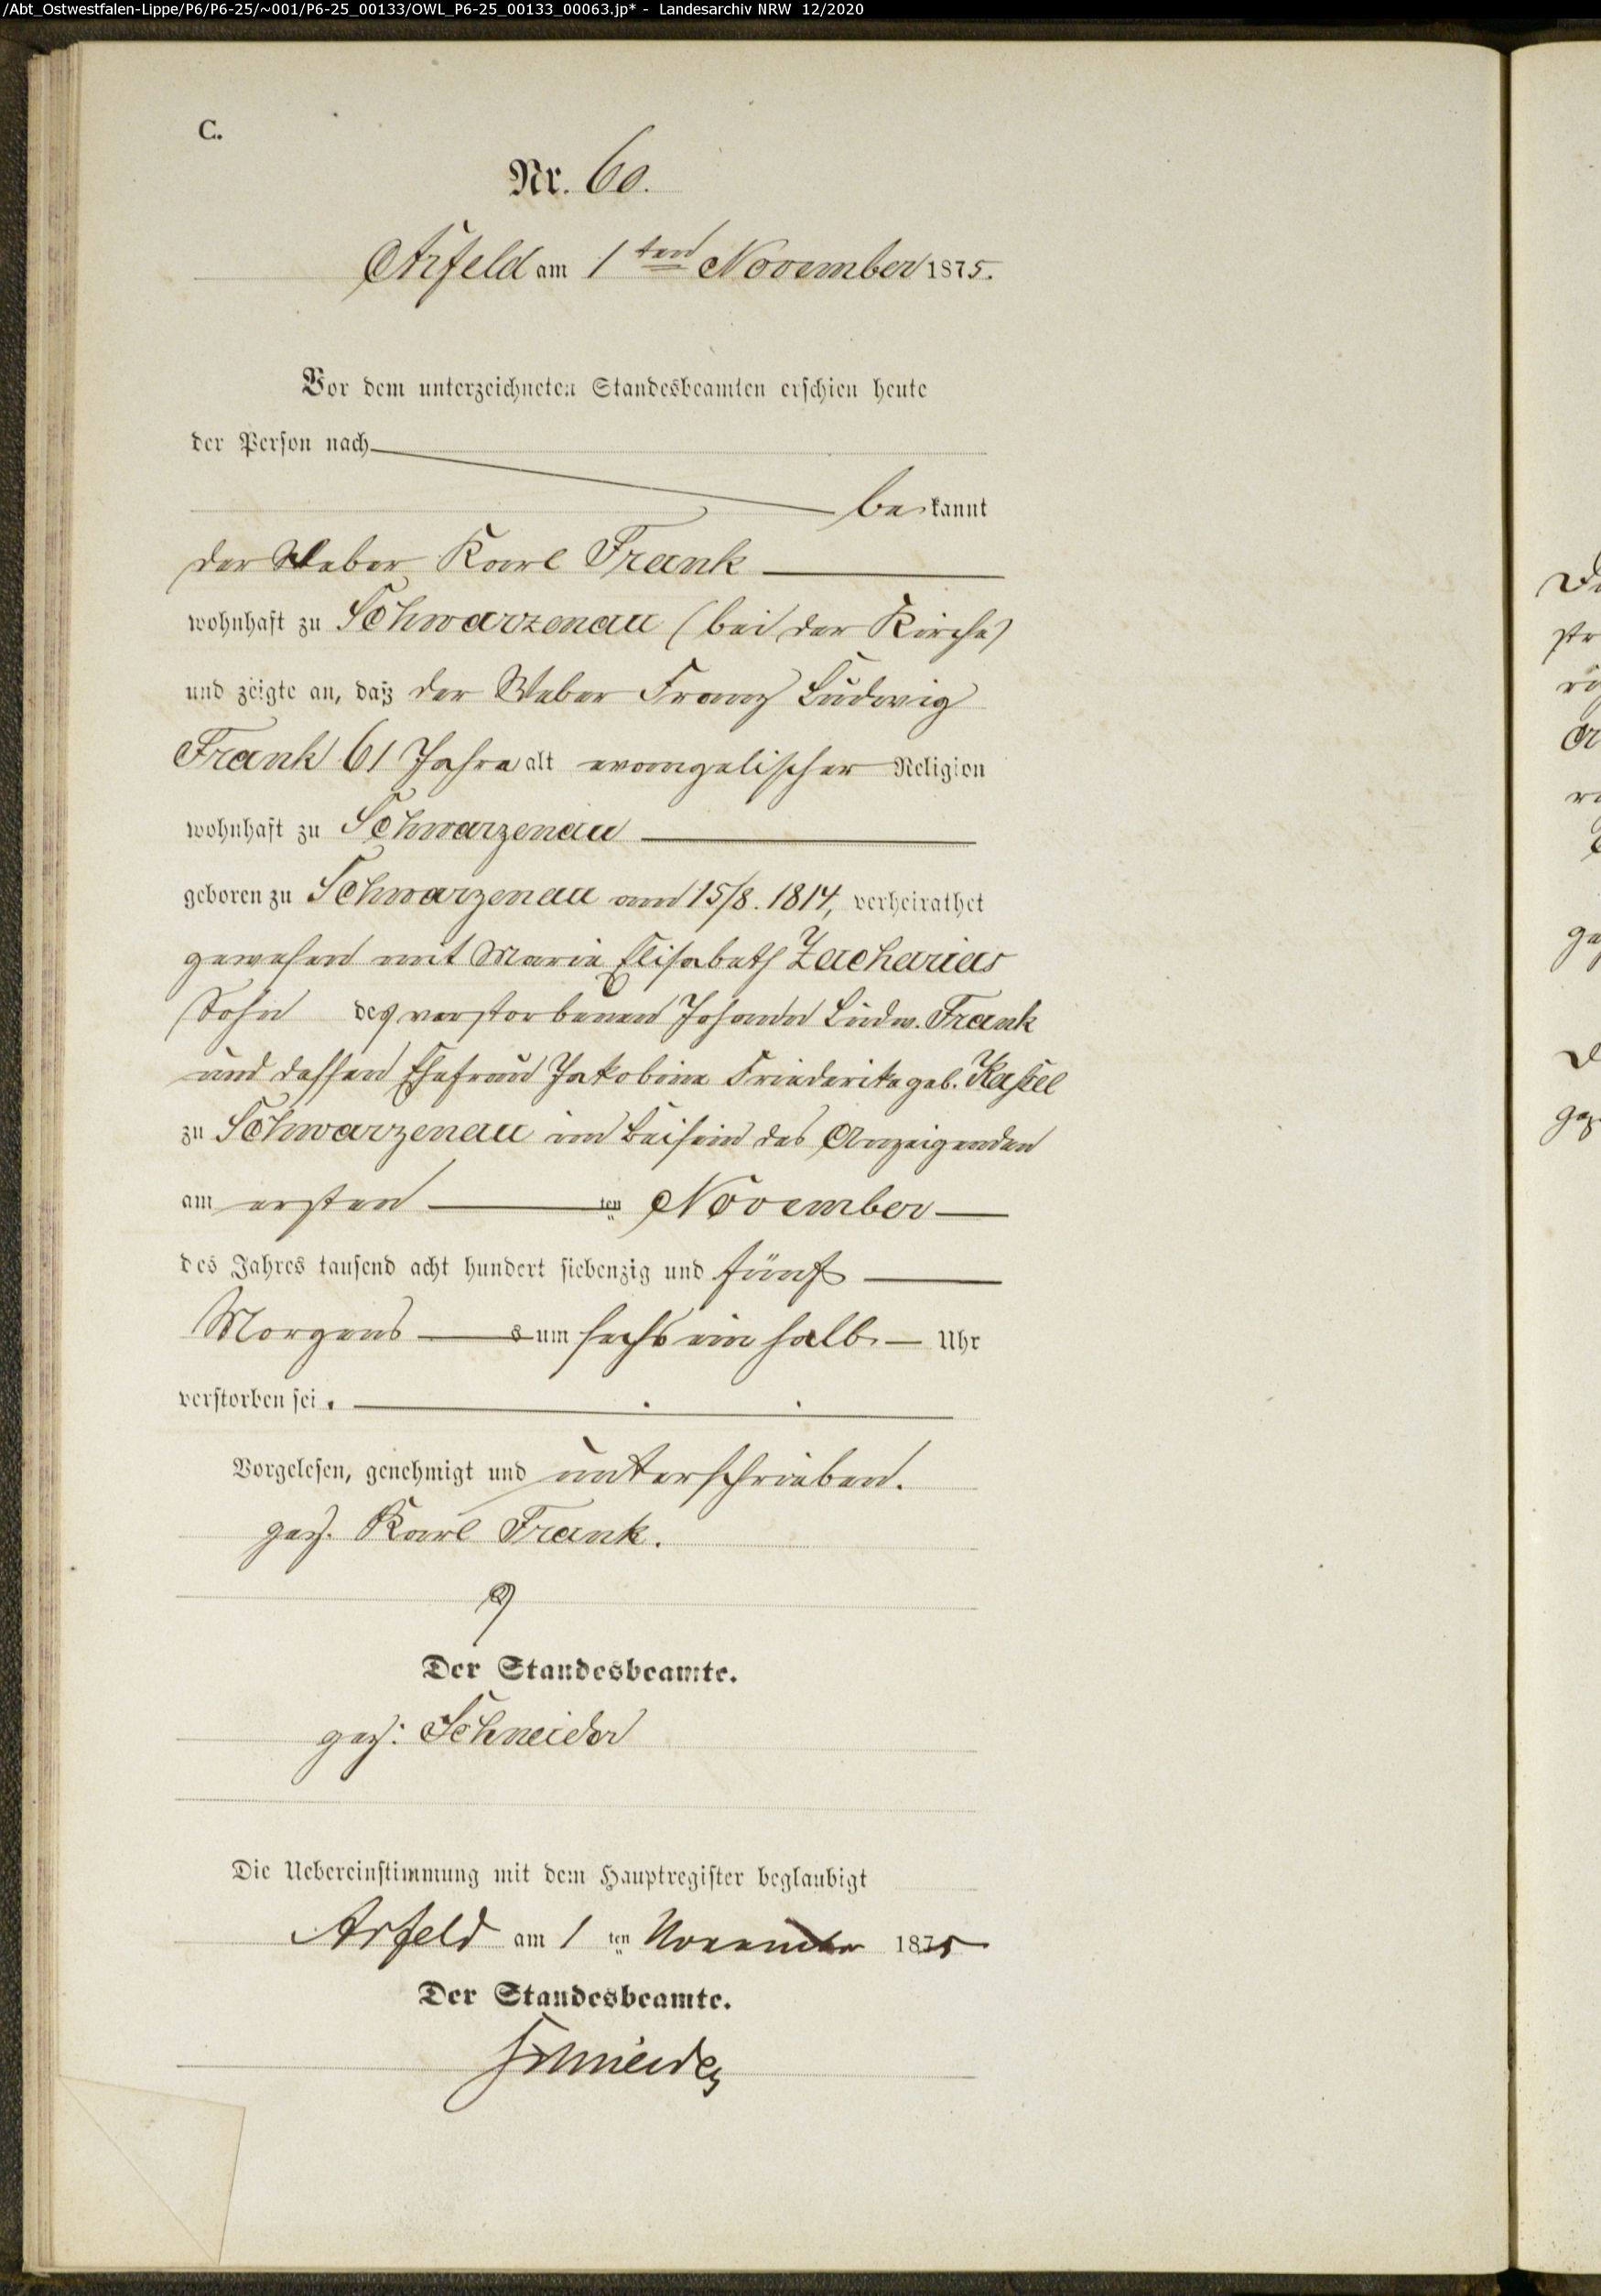 /Abt_Ostwestfalen-Lippe/P6/P6-25/~001/P6-25_00133/OWL_P6-25_00133_00063.jp* - Landesarchiv NRW 12/2020
C.
Nr. 60.
Arfeld am 1ten November 1875.
Vor dem unterzeichneten Standesbeamten erschien heute
der Person nach
bekannt
der Weber Karl Frank
wohnhaft zu Schwarzenau (bei der Kirche)
und zeigte an, daß der Weber Franz Ludwig
Frank 61 Jahre alt evangelischer Religion
wohnhaft zu Schwarzenau
geboren zu Schwarzenau am 15/8. 1814, verheirathet
gewesen mit Maria Elisabeth Zacharias
Sohn des verstorbenen Johann Ludw. Frank
und dessen Ehefrau Jakobine Friederike geb.
zu Schwarzenau im Beisein des Anzeigenden
am ersten ten November
des Jahres tausend acht hundert siebenzig und fünf
Morgens um sechs ein halb Uhr
verstorben sei.
Vorgelesen, genehmigt und unterschrieben.
gez. Karl Frank.
Der Standesbeamte.
gez: Schneider
Die Uebereinstimmung mit dem Hauptregister beglaubigt
Arfeld am 1 ten November 1875
Der Standesbeamte.
Schneider